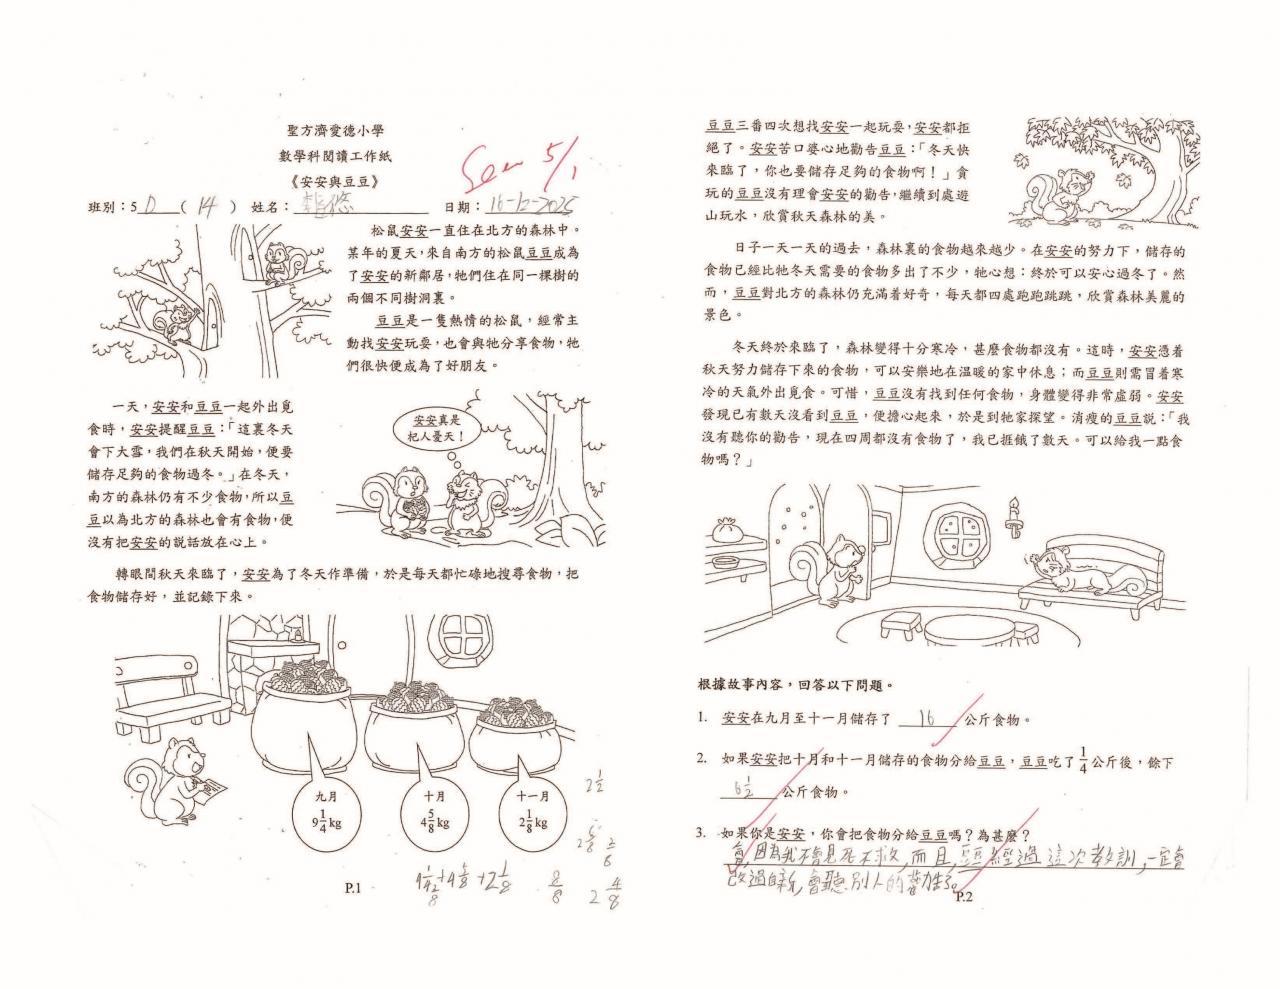 聖方濟愛德小學
數學科閱讀工作紙
《安安與豆豆》
5/1
班別：5 D ( 14 ) 姓名： 日期：16-12-2025
松鼠安安一直住在北方的森林中。
某年的夏天，來自南方的松鼠豆豆成為
了安安的新鄰居，牠們住在同一棵樹的
兩個不同樹洞裏。
豆豆是一隻熱情的松鼠，經常主
動找安安玩耍，也會與牠分享食物，牠
們很快便成為了好朋友。
一天，安安和豆豆一起外出覓
食時，安安提醒豆豆：「這裏冬天
會下大雪，我們在秋天開始，便要
儲存足夠的食物過冬。」在冬天，
南方的森林仍有不少食物，所以豆
豆以為北方的森林也會有食物，便
沒有把安安的說話放在心上。
安安真是
杞人憂天！
轉眼間秋天來臨了，安安為了冬天作準備，於是每天都忙碌地搜尋食物，把
食物儲存好，並記錄下來。
九月
9 1/4 kg
十月
4 5/8 kg
十一月
2 1/8 kg
2 1/2
2 5/8
8/8
2 4/8
P.1
豆豆三番四次想找安安一起玩耍，安安都拒
絕了。安安苦口婆心地勸告豆豆：「冬天快
來臨了，你也要儲存足夠的食物啊！」貪
玩的豆豆沒有理會安安的勸告，繼續到處遊
山玩水，欣賞秋天森林的美。
日子一天一天的過去，森林裏的食物越來越少。在安安的努力下，儲存的
食物已經比牠冬天需要的食物多出了不少，牠心想：終於可以安心過冬了。然
而，豆豆對北方的森林仍充滿着好奇，每天都四處跑跑跳跳，欣賞森林美麗的
景色。
冬天終於來臨了，森林變得十分寒冷，甚麼食物都沒有。這時，安安憑着
秋天努力儲存下來的食物，可以安樂地在溫暖的家中休息；而豆豆則需冒着寒
冷的天氣外出覓食。可惜，豆豆沒有找到任何食物，身體變得非常虛弱。安安
發現已有數天沒看到豆豆，便擔心起來，於是到牠家探望。消瘦的豆豆說：「我
沒有聽你的勸告，現在四周都沒有食物了，我已捱餓了數天。可以給我一點食
物嗎？」
根據故事內容，回答以下問題。
1. 安安在九月至十一月儲存了 16 公斤食物。
2. 如果安安把十月和十一月儲存的食物分給豆豆，豆豆吃了 1/4 公斤後，餘下
6 1/2 公斤食物。
3. 如果你是安安，你會把食物分給豆豆嗎？為甚麼？
會，因為我不會見死不救，而且，豆豆經過這次教訓，一定會
改過自新，會聽別人的
P.2